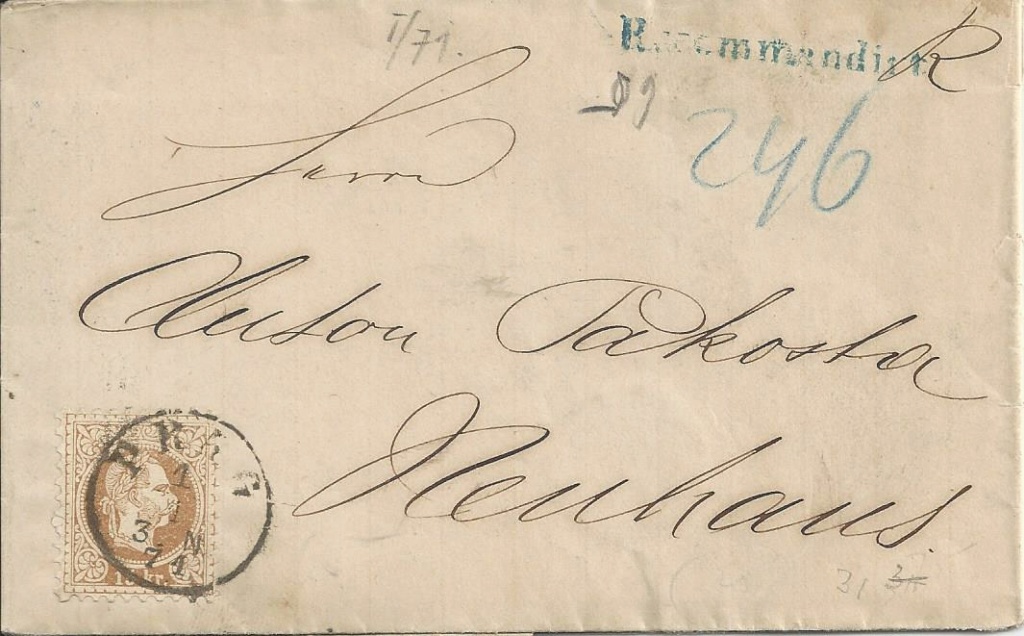 I/71.
Recommandirt
R
246
Herrn
Anton Pakosta
Neuhaus.
15 kr.